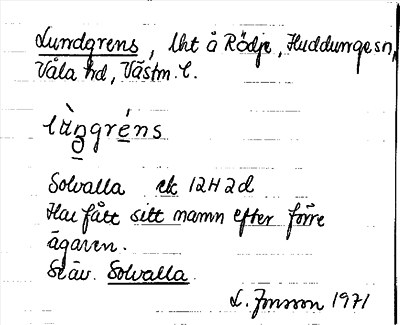 Lundgrens, lht å Rödje, Huddungesn,
Våla hd, Västm. l.
làŋgréns
Solvalla ek 12H2d
Har fått sitt namn efter förre
ägaren.
Även Solvalla.
L. Jonsson 1971